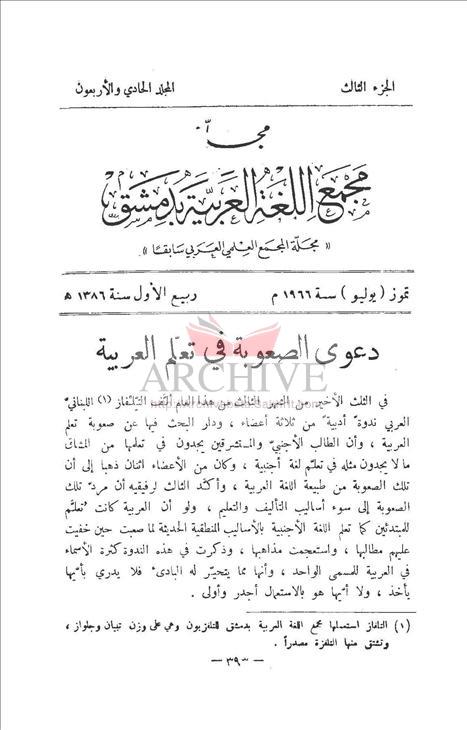 الجزء الثالث
المجلد الحادي والأربعون
مجلة
مجمع اللغة العربية بدمشق
« مجلة المجمع العلمي العربي سابقًا »
تموز ( يوليو ) سنة ١٩٦٦ م
ربيع الأول سنة ١٣٨٦ ه
دعوى الصعوبة في تعلّم العربية
ARCHIVE
في الثلث الأخير من الشهر الثالث من هذا العام ألّف التِلفاز (١) اللبنانيّ
العربي ندوة أدبيةً من ثلاثة أعضاء ، ودار البحث فيها عن صعوبة تعلم
العربية ، وأن الطالب الأجنبيّ والمستشرقين يجدون في تعلمها من المشاقّ
ما لا يجدون مثله في تعلّم لغة أجنبية ، وكان من الأعضاء اثنان ذهبا إلى أن
تلك الصعوبة من طبيعة اللغة العربية ، وأكّد الثالث لرفيقيه أن مردّ تلك
الصعوبة إلى سوء أساليب التأليف والتعليم ، ولو أن العربية كانت تُعلَّم
للمبتدئين كما تعلم اللغة الأجنبية بالأساليب المنطقية الحديثة لما صعبت حين خفيت
عليهم مطالبها ، واستعجمت مذاهبها ، وذكرت في هذه الندوة كثرة الأسماء
في العربية للمسمى الواحد ، وأنها مما يتحيّر له البادئ فلا يدري بأيّها
يأخذ ، ولا أيّها هو بالاستعمال أجدر وأولى .
(١) التلفاز استعملها مجمع اللغة العربية بدمشق للتلفزيون وهي على وزن تبيان وجلواز ،
وتشتق منها التلفزة مصدراً .
— ٣٩٣ —